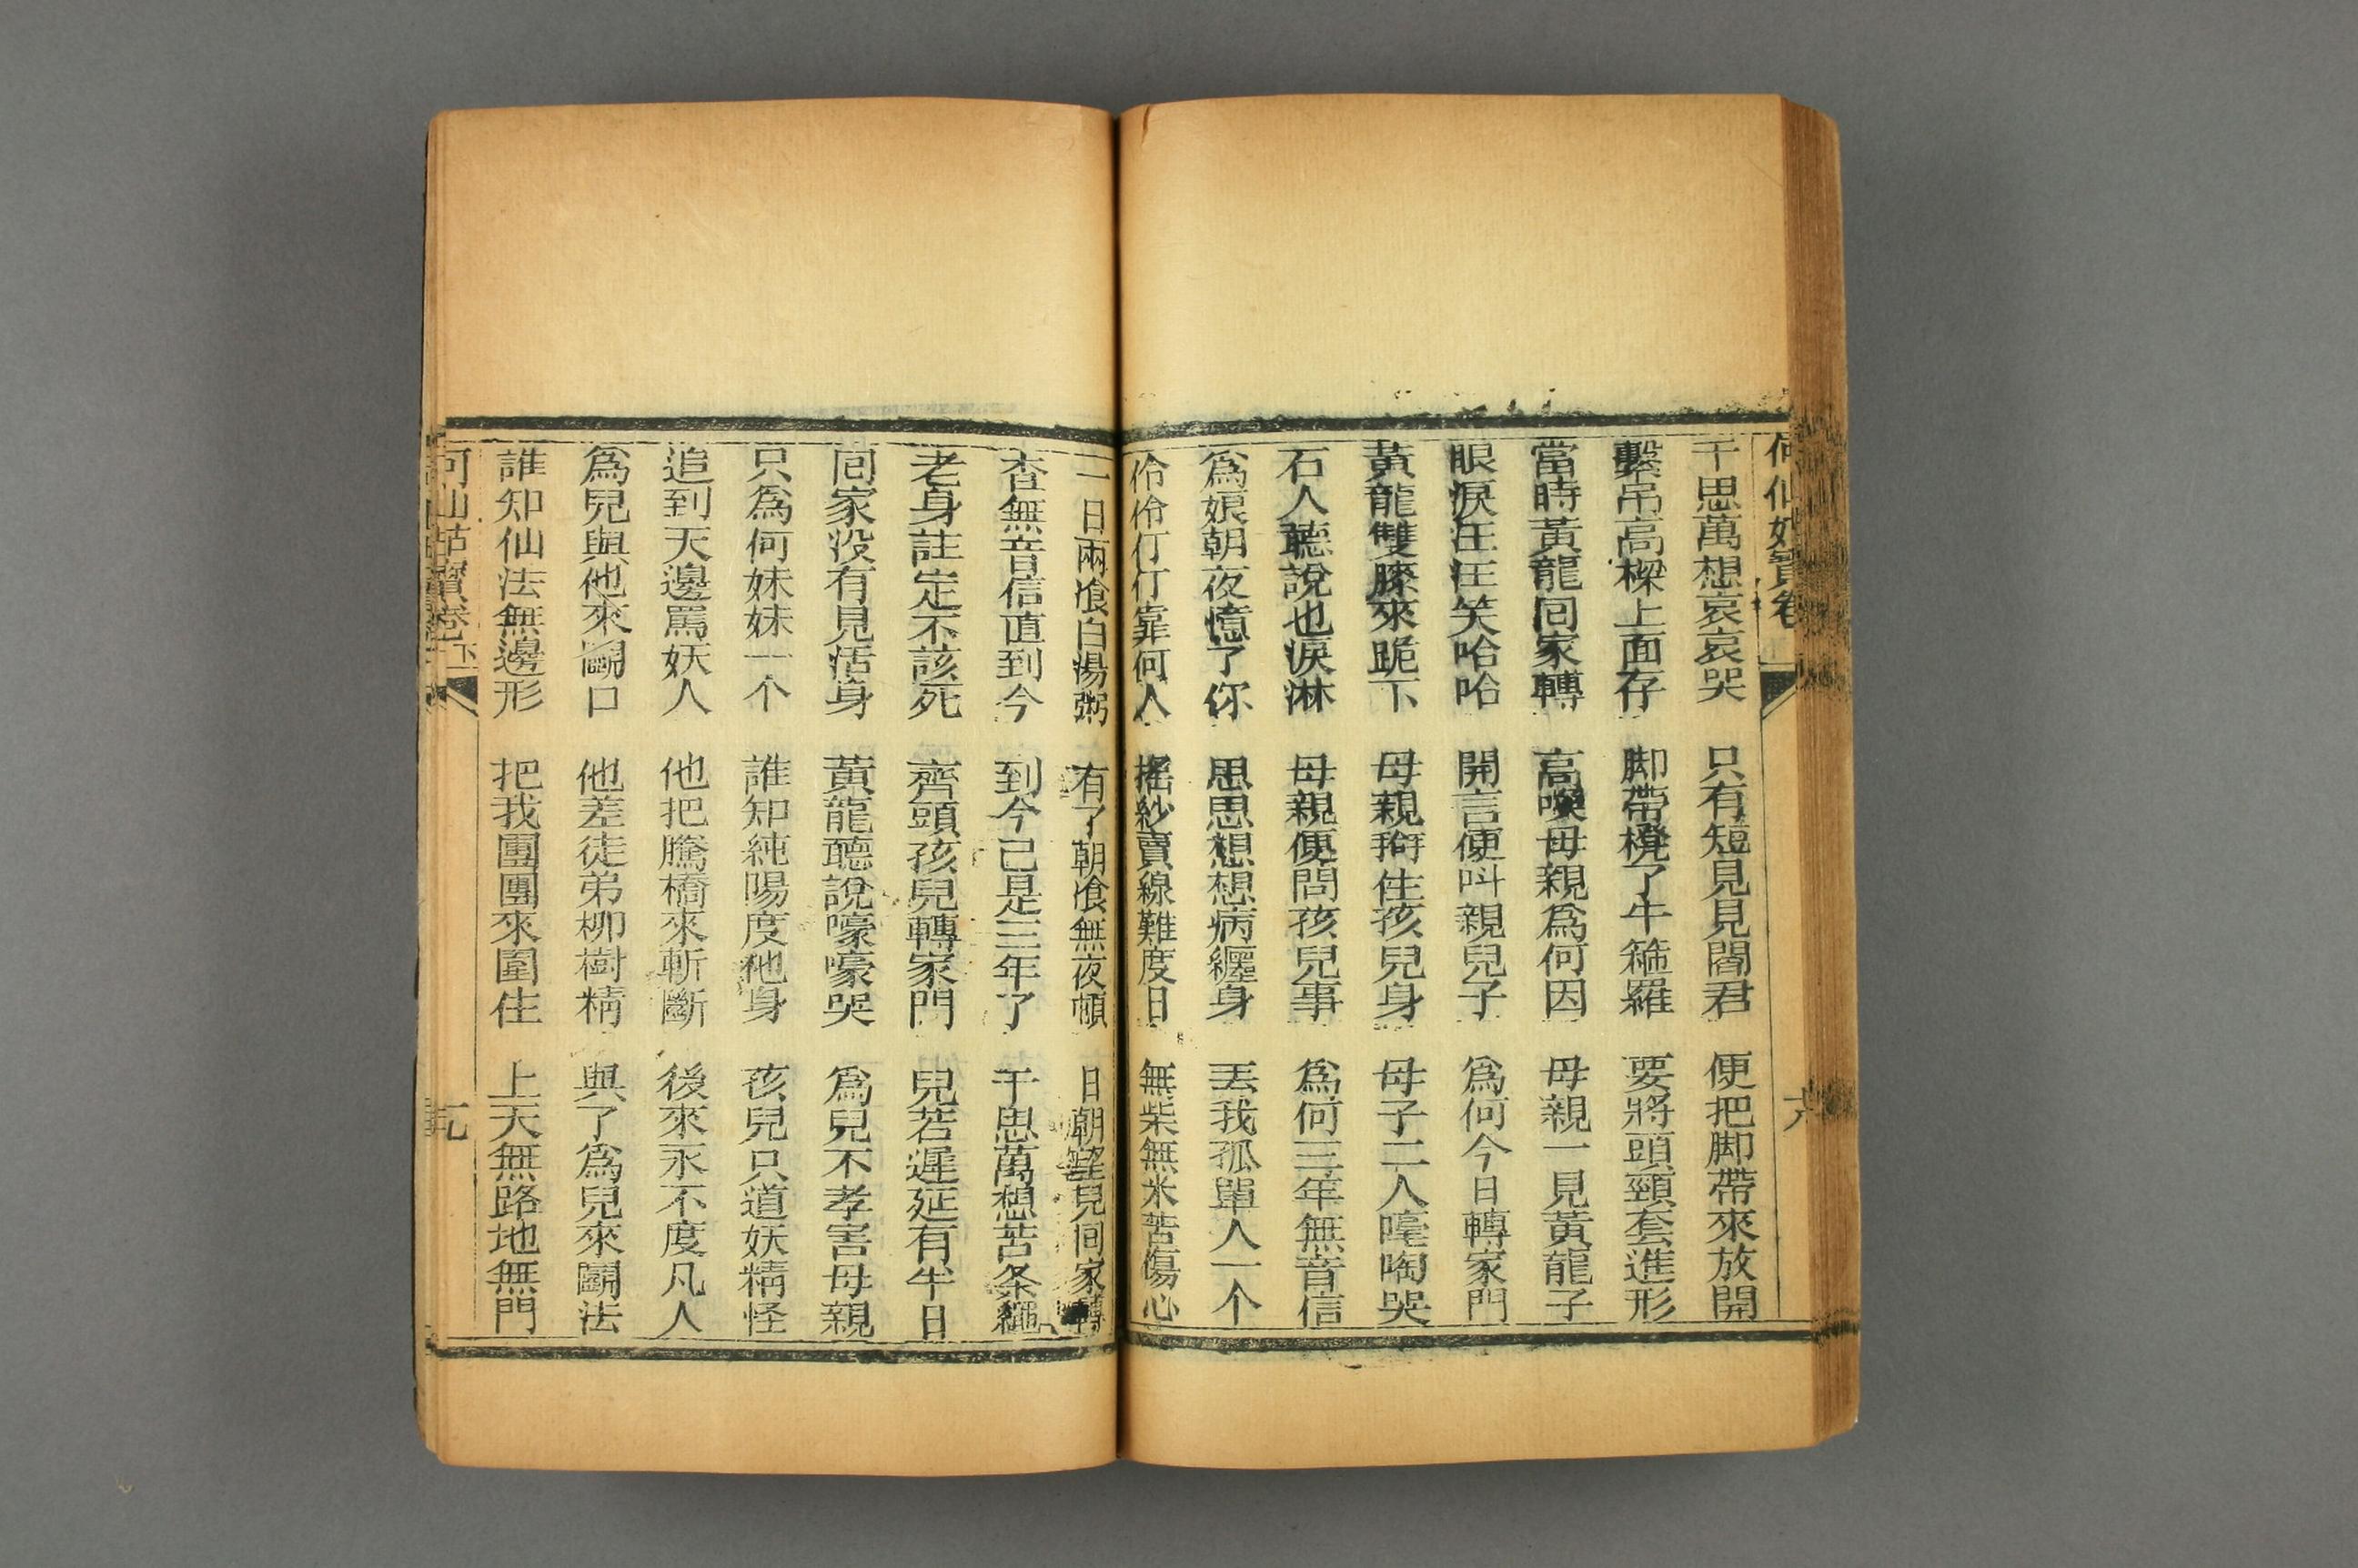 何仙姑寶卷
千思萬想哀哀哭 只有短見見閻君 便把脚帶來放開
繫吊高樑上面存 脚帶櫈了牛箍羅 要將頭頸套進形
當時黃龍囘家轉 高喚母親爲何因 母親一見黃龍子
眼淚汪汪笑哈哈 開言便叫親兒子 爲何今日轉家門
黃龍雙膝來跪下 母親住孩兒身 母子二人嚎啕哭
石人聽說也淚淋 母親便問孩兒事 爲何三年無音信
爲娘朝夜憶了你 思思想想病纏身 丟我孤單人一个
伶伶仃仃靠何人 搖紗賣線難度日 無柴無米苦傷心
一日兩飡白湯粥 有了朝飡無夜頓 日朝望兒囘家轉
杳無音信直到今 到今己是三年了 千思萬想苦条繩
老身註定不該死 齊頭孩兒轉家門 兒若遲延有半日
囘家没有見活身 黃龍聽說嚎嚎哭 爲兒不孝害母親
只爲何妹妹一个 誰知純陽度他身 孩兒只道妖精怪
追到天邊罵妖人 他把騰橋來斬斷 後來永不度凡人
爲兒與他來鬬口 他差徒弟柳樹精 與了爲兒來鬬法
誰知仙法無邊形 把我團團來圍住 上天無路地無門
何仙姑寶卷 下